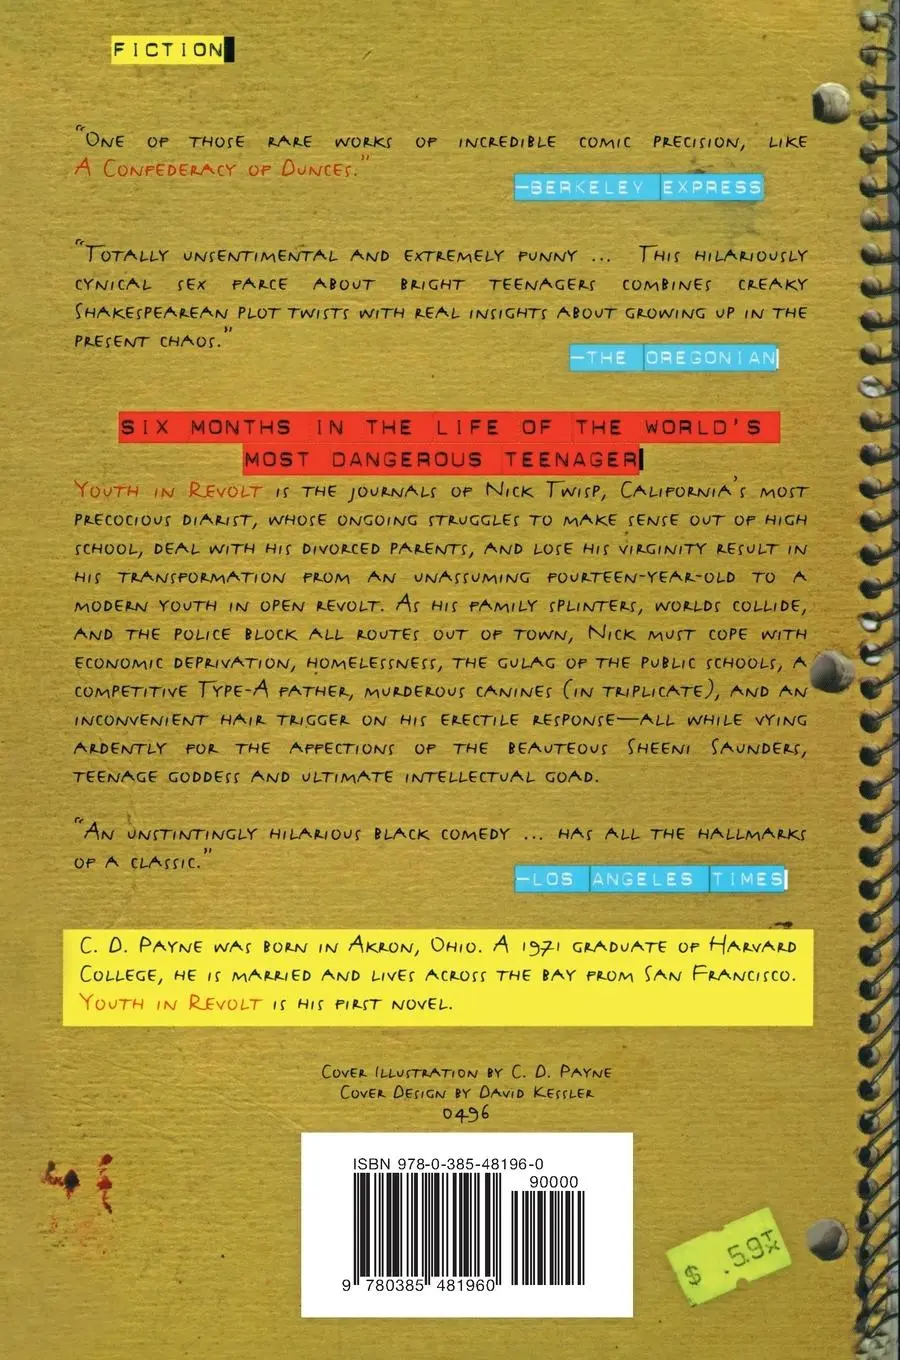 FICTION
"ONE OF THOSE RARE WORKS OF INCREDIBLE COMIC PRECISION, LIKE
A CONFEDERACY OF DUNCES."
—BERKELEY EXPRESS
"TOTALLY UNSENTIMENTAL AND EXTREMELY FUNNY ... THIS HILARIOUSLY
CYNICAL SEX FARCE ABOUT BRIGHT TEENAGERS COMBINES CREAKY
SHAKESPEAREAN PLOT TWISTS WITH REAL INSIGHTS ABOUT GROWING UP IN THE
PRESENT CHAOS."
—THE OREGONIAN
SIX MONTHS IN THE LIFE OF THE WORLD'S
MOST DANGEROUS TEENAGER
YOUTH IN REVOLT IS THE JOURNALS OF NICK TWISP, CALIFORNIA'S MOST
PRECOCIOUS DIARIST, WHOSE ONGOING STRUGGLES TO MAKE SENSE OUT OF HIGH
SCHOOL, DEAL WITH HIS DIVORCED PARENTS, AND LOSE HIS VIRGINITY RESULT IN
HIS TRANSFORMATION FROM AN UNASSUMING FOURTEEN-YEAR-OLD TO A
MODERN YOUTH IN OPEN REVOLT. AS HIS FAMILY SPLINTERS, WORLDS COLLIDE,
AND THE POLICE BLOCK ALL ROUTES OUT OF TOWN, NICK MUST COPE WITH
ECONOMIC DEPRIVATION, HOMELESSNESS, THE GULAG OF THE PUBLIC SCHOOLS, A
COMPETITIVE TYPE-A FATHER, MURDEROUS CANINES (IN TRIPLICATE), AND AN
INCONVENIENT HAIR TRIGGER ON HIS ERECTILE RESPONSE—ALL WHILE VYING
ARDENTLY FOR THE AFFECTIONS OF THE BEAUTEOUS SHEENI SAUNDERS,
TEENAGE GODDESS AND ULTIMATE INTELLECTUAL GOAD.
"AN UNSTINTINGLY HILARIOUS BLACK COMEDY ... HAS ALL THE HALLMARKS
OF A CLASSIC."
—LOS ANGELES TIMES
C. D. PAYNE WAS BORN IN AKRON, OHIO. A 1971 GRADUATE OF HARVARD
COLLEGE, HE IS MARRIED AND LIVES ACROSS THE BAY FROM SAN FRANCISCO.
YOUTH IN REVOLT IS HIS FIRST NOVEL.
COVER ILLUSTRATION BY C. D. PAYNE
COVER DESIGN BY DAVID KESSLER
0496
ISBN 978-0-385-48196-0
90000
9 780385 481960
$ .59